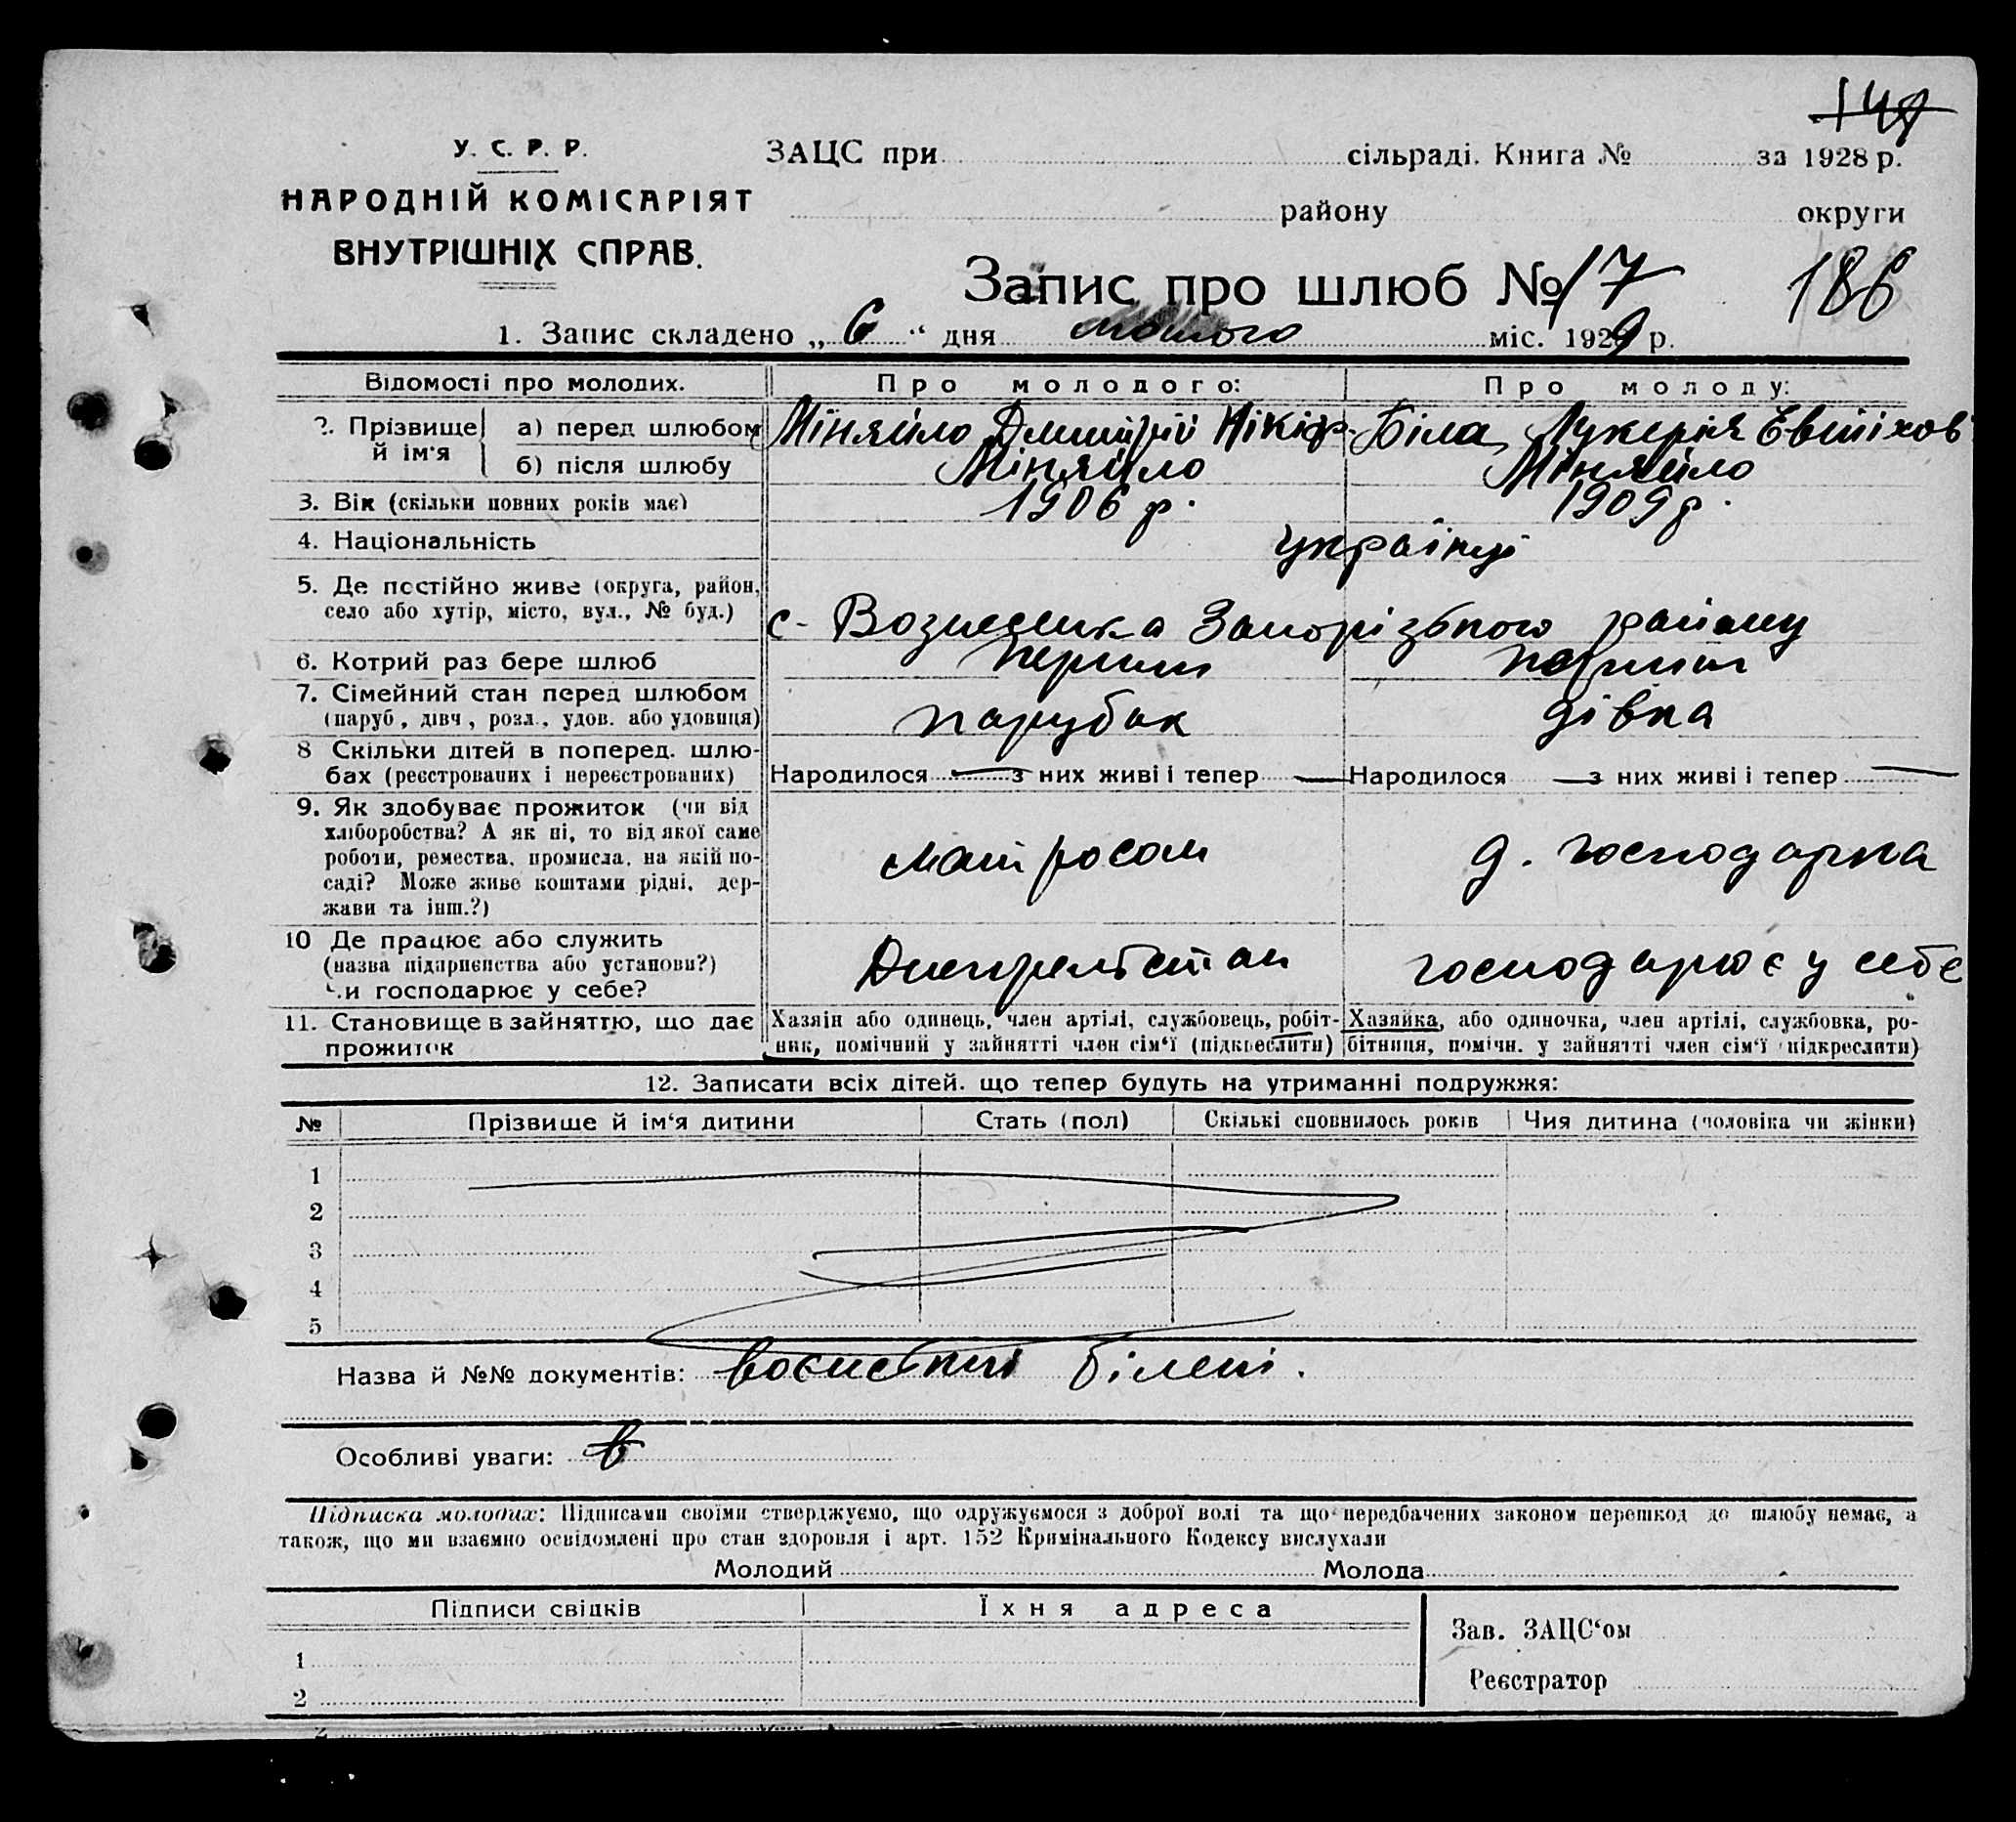 149
У. С. Р. Р.
НАРОДНІЙ КОМІСАРІЯТ
ВНУТРІШНІХ СПРАВ.
ЗАЦС при сільраді. Книга № за 1928 р.
району округи
Запис про шлюб № 17 186
1. Запис складено „ 6 “ дня лютого міс. 1929 р.
Відомості про молодих. Про молодого: Про молоду:
2. Прізвище й ім'я а) перед шлюбом Міняйло Дмитрій Нікіф. Біла Лукерія Евтіхов
б) після шлюбу Міняйло Міняйло
3. Вік (скільки повних років має) 1906 р. 1909 р.
4. Національність українці
5. Де постійно живе (округа, район,
село або хутір, місто, вул., № буд.) с. Вознесенка Запорізького району
6. Котрий раз бере шлюб перший перший
7. Сімейний стан перед шлюбом
(паруб., дівч., розл., удов. або удовиця) парубок дівка
8 Скільки дітей в поперед. шлю-
бах (реєстрованих і нереєстрованих) Народилося — з них живі і тепер — Народилося — з них живі і тепер —
9. Як здобуває прожиток (чи від
хліборобства? А як ні, то від якої саме
роботи, ремества, промисла, на якій по-
саді? Може живе коштами рідні, дер-
жави та інш.?) матросом д. господарка
10 Де працює або служить
(назва підприєпства або установи?)
Чи господарює у себе? Днепрельстан господарює у себе
11. Становище в зайняттю, що дає
прожиток
Хазяїн або одинець, член артілі, службовець, робіт-
ник, помічний у зайнятті член сім'ї (підкреслити)
Хазяйка, або одиночка, член артілі, службовка, ро-
бітниця, помічн. у зайнятті член сім'ї (підкреслити)
12. Записати всіх дітей, що тепер будуть на утриманні подружжя:
№ Прізвище й ім'я дитини Стать (пол) Скількі сповнилось років Чия дитина (чоловіка чи жінки)
1
2
3
4
5
Назва й №№ документів: білеті.
Особливі уваги:
Підписка молодих: Підписами своїми стверджуємо, що одружуємося з доброї волі та що передбачених законом перешкод до шлюбу немає, а
також, що ми взаємно освідомлені про стан здоровля і арт. 152 Кримінального Кодексу вислухали
Молодий Молода
Підписи свідків Їхня адреса
Зав. ЗАЦС'ом
1
Реєстратор
2